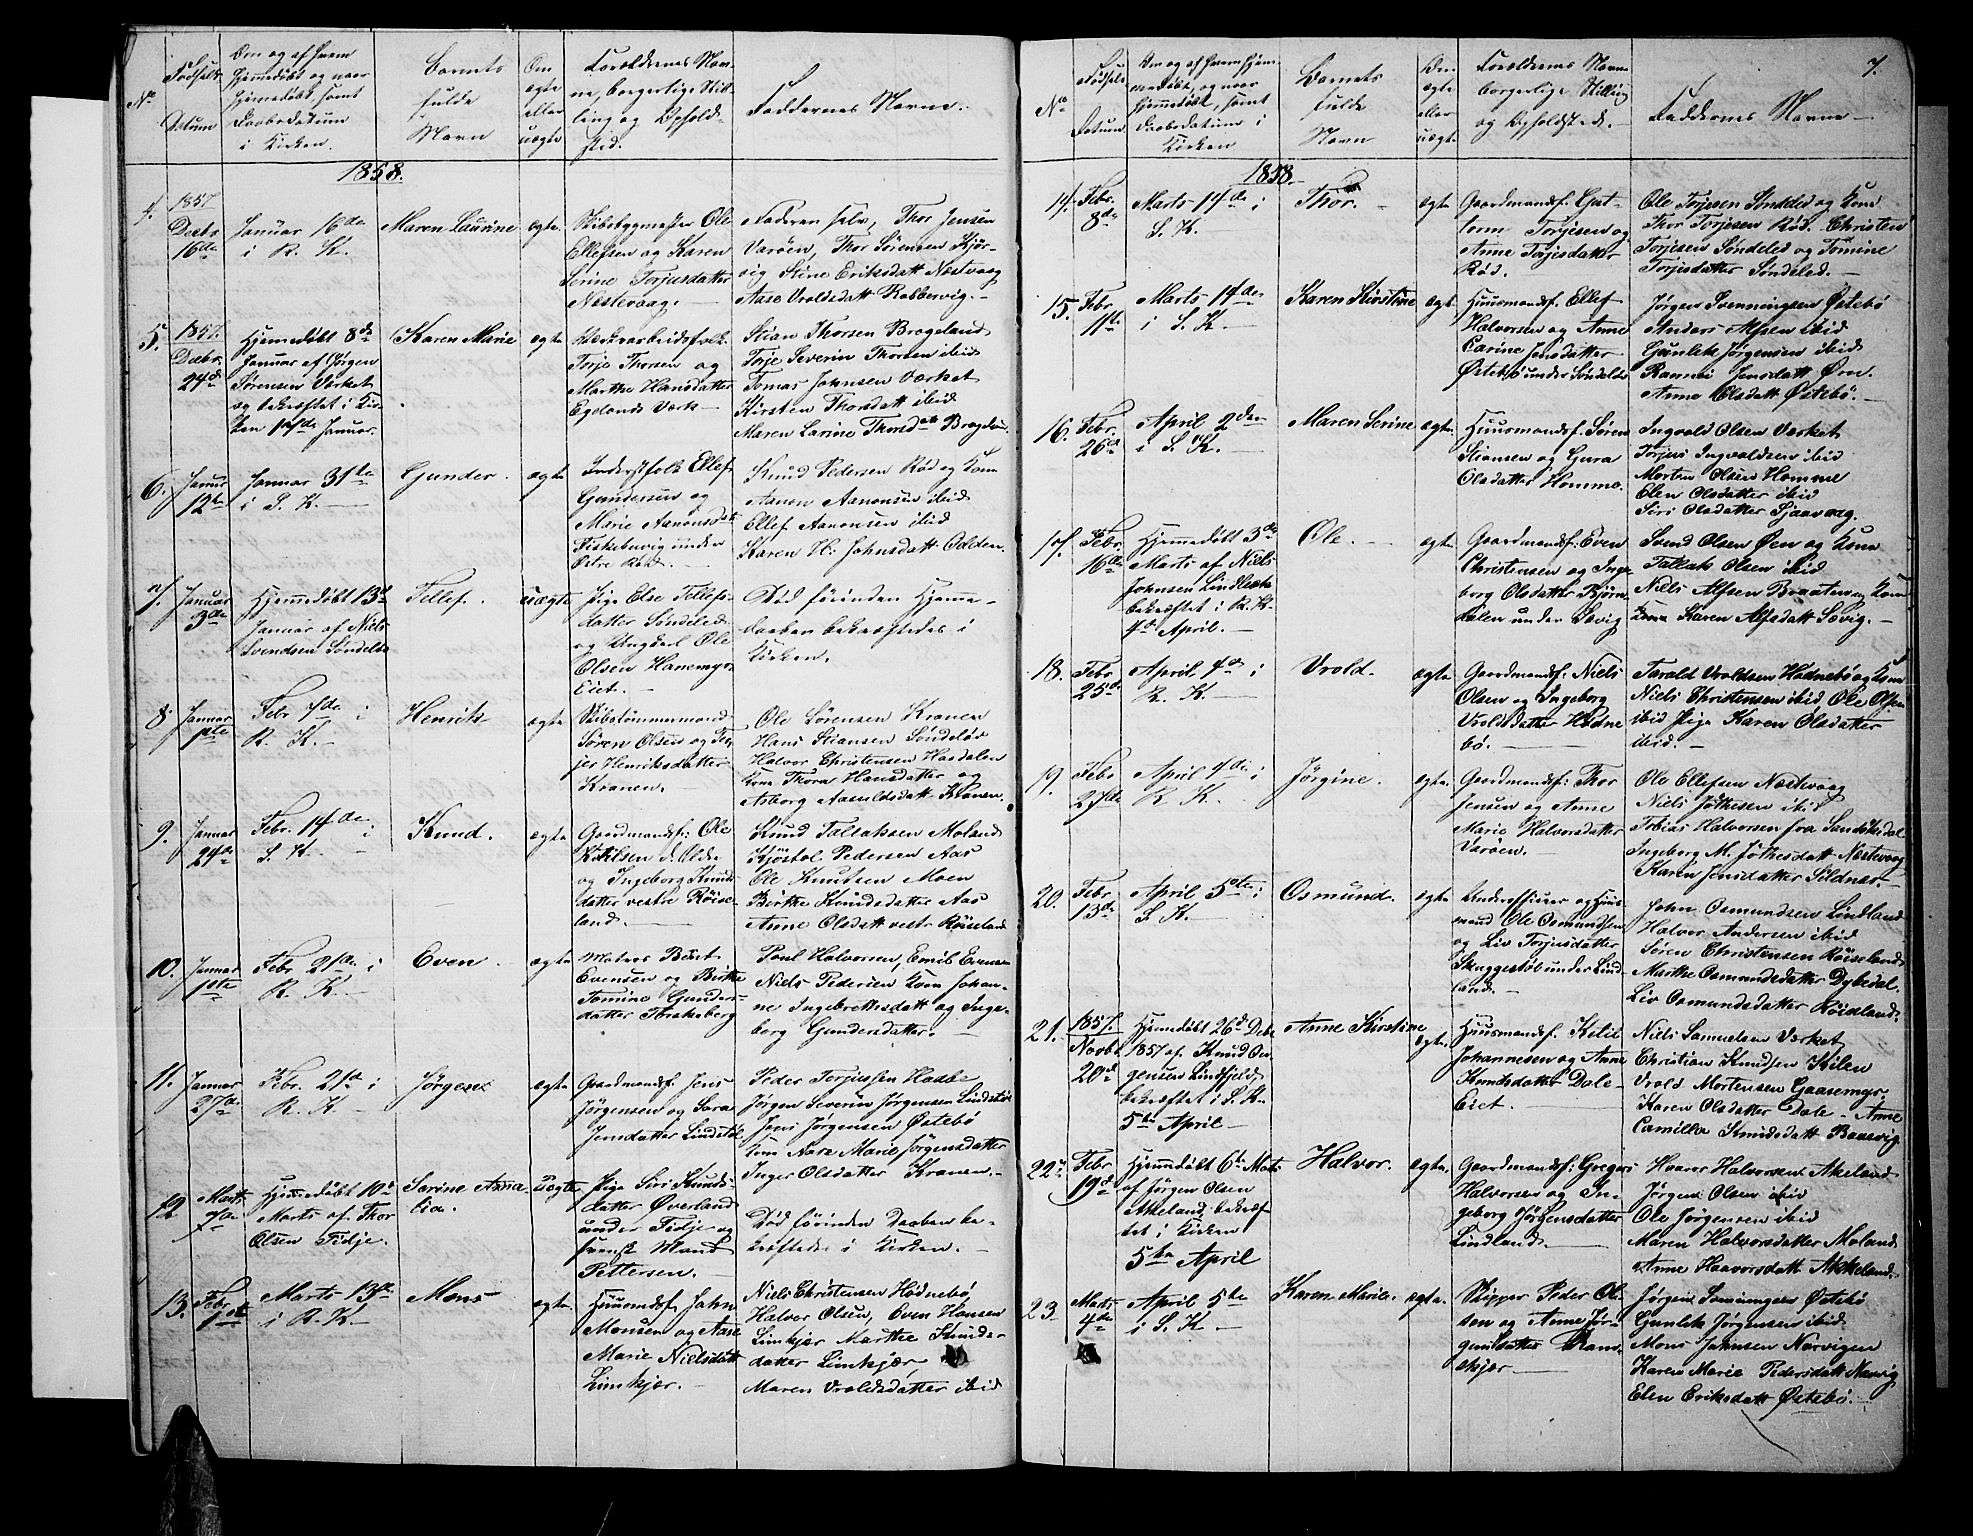 7.
No
Fødsels
Datum
Om og af hvem
hjemmedøbt og naar
hjemmedøbt, samt
Daabsdatum
i Kirken.
Barnets
fulde
Navn
Om
ægte
eller
uægte
Forældrenes Nav-
ne, borgerlige Stil-
ling og Opholds-
sted.
Faddernes Navne.
1858.
4.
1857
Decbr
16de
Januar 16de
i R. K.
Maren Laurine
ægte.
Skibsbygmester Ole
Ellefsen og Karen
Serine Torjesdatter
Næstevaag.
Faderen selv, Thor Jensen
Varøen, Thor Sørensen Kjør-
vig Stine Eriksdatt Næstvaag
Aase Vroldsdatt Robbervig.
5.
1857.
Decbr.
24de
Hjemmedøbt 8de
Januar af Jørgen
Sørensen Værket
og bekræftet i Kir-
ken 17de Januar.
Karen Marie
ægte
Værkarbeidsfolk
Torje Thorsen og
Marthe Hansdatter
Egelands Værk
Stian Thorsen Brogeland
Torje Severin Thorsen ibid
Tomas Johnsen Værket
Kirsten Thorsdatt ibid
Maren Larine Thorsdatt
6.
Januar
12te
Januar 31te
i S. K.
Gunder.
ægte
Inderstfolk Ellef
Gundersen og
Marie Aanonsdatt
Fiskebuvig under
Østre Rød.
Knud Pedersen Rød og Kone
Aanon Aanonsen ibid
Ellef Aanonsen ibid
Karen H. Johnsdatt Odden.
7.
Januar
3de
Hjemmedøbt 13de
Januar af Niels
Svendsen Søndeled
Tellef.
uægte
Pige Else Tellefs-
datter Søndeled
og Ungkarl Ole
Olsen Hanemyr-
Eiet.
Død førinden Hjemme-
daaben bekræftedes i
Kirken.
8
Januar
1ste
Febr 7de i
R. K.
Henrik
ægte
Skibstømmermand
Søren Olsen og Ter-
jer Henriksdatter
Kranen.
Ole Sørensen Kranen
Hans Stiansen Søndeløv
Halvor Christensen Hasdalen
Kone Thora Hansdatter og
Asborg Aasuldsdatt Kranen.
9.
Januar
24de
Febr. 14de i
S. K.
Knud.
ægte
Gaardmandsf: Ole
Kittilsen d. Eldre
og Ingeborg Knuds-
datter vestre Røise-
land.
Knud Tallaksen Moland
Kjøstol Pedersen Aas
Ole Knutsen Moen
Birthe Knudsdatter Aas
Anne Olsdatt vestr Røiseland
10.
Januar
1ste
Febr. 21de i
R. K.
Even.
ægte
Matros Børt
Evensen og Birthe
Tomine Gunders-
datter Torskeberg
Poul Halvorsen, Emil Evensen
Niels Pedersen Kone Johan-
ne Ingebrettsdatt og Inge-
borg Gundersdatter.
11.
Januar
27de
Febr. 21de i
R. K.
Jørgen
ægte
Gaardmandsf. Jens
Jørgensen og Sara
Jensdatter Lindstøl
Peder Torjussen Hasbe
Jørgen Severin Jørgensen Lindstøl
Jens Jørgensen Østebø
Kone Marie Jørgensdatter
Inger Olsdatter Kranen.
12
Marts
7de
Hjemmedøbt 10de
Marts af Thor
Olsen Fidje.
Serine Ama-
lia.
uægte
Pige Siri Knuds-
datter Øverland
under Fidje og
fransk Mand
Pettersen.
Død førinden Daaben be-
kræftedes i Kirken.
13.
Febr.
1ste
Marts 13de
i R. K.
Mons
ægte
Huusmdsf. John
Monsen og Aase
Marie Nielsdatt
Limkjær.
Niels Christensen Hødnebø
Halvor Olsen, Even Hansen
Limkjær Marthe Knuds-
datter Limkjær,
Maren Vroldsdatter ibid
No
Fødsels
Datum
Om og af hvem hjem-
medøbt, og naar
hjemmedøbt, samt
Daabsdatum i
Kirken
Barnets
fulde
Navn
Om
ægte
eller
uægte
Forældrenes Navne
borgerlige Stilling
og Opholdsted.
Faddernes Navne
1858.
14.
Febr.
8de
Marts 14de i
S. K.
Thor.
ægte
Gaardmandsf. Gut-
torm Torjesen og
Anne Torjesdatter
Rød.
Ole Torjesen Søndeled og Kone
Thor Torjesen Rød. Christen
Torjesen Søndeled og Tomine
Torjesdatter Søndeled.
15.
Febr
11te
Marts 14de
i S. K.
Karen Kirstine
ægte.
Huusmandsf. Ellef
Halvorsen og Anne
Carine Jensdatter
Østebø under Søndeled
Jørgen Svenningsen Østebø
Anders Alfsen ibid
Gunlek Jørgensen ibid
Ravnei Jensdatt Øen.
Anne Olsdatt Østebø.
16.
Febr.
26de
April 2den
i S. K.
Maren Serine
ægte.
Huusmandsf. Søren
Stiansen og Gura
Olsdatter Homme.
Ingvald Olsen Værket
Torjus Ingvaldsen ibid
Morten Olsen Homme
Elen Olsdatter ibid
Siri Olsdatter Sjaavaag.
17.
Febr.
16de
Hjemmedøbt 3de
Marts af Niels
Johnsen Lindbæk
bekræftet i R. K.
4de April.
Ole.
ægte
Gaardmandsf: Even
Christensen og Inge-
borg Olsdatter Bjørn-
dalen under Sævig
Svend Olsen Øen og Kone
Tallak Olsen ibid
Niels Alfsen Braaten og Kone
Karen Alfsdatt Sævig.
18.
Febr
25de
April 4de i
R. K.
Vrold.
ægte.
Gaardmandsf: Niels
Olsen og Ingeborg
Vroldsdatter Hødne
bø.
Tarald Vroldsen Hødnebø og Kone
Niels Christensen ibid Ole Olsen
ibid Pige Karen Olsdatter
ibid.
19.
Febr
27de
April 4de i
R. K.
Jørgine.
ægte.
Gaardmandsf: Thor
Jensen og Anne
Marie Halvorsdatter
Varøen.
Ole Ellefsen Næstevaag
Niels Jøthesen ibid
Tobias Halvorsen fra Sandøkedal
Ingeborg M. Jøthesdatt Næstevaag
Karen Jensdatter Sildnæs.
20.
Febr
13de
April 5te i
S. K.
Osmund.
ægte.
Underofficer og Huus-
mand Ole Osmundsen
og Liv Torjusdatter
Skuggestøl under Lind-
land.
John Osmundsen Lindland
Halvor Andersen ibid
Søren Christensen Røiseland
Marthe Osmundsdatter Dybedal.
Liv Osmundsdatter Røiseland.
21.
1857.
Novbr
20de
Hjemmedøbt 26de Decbr
1857 af Knud Jør-
gensen Lindfjeld,
bekræftet i S. K.
5te April
Anne Kirstine
ægte.
Huusmandsf. Kitil
Johannesen og Anne
Knudsdatter Dale-
Eiet.
Niels Samuelsen Værket
Christian Knudsen Kilen
Vrold Mortensen Gaasemyr.
Karen Olsdatter Dale. Anne
Camilla Knudsdatt Baasvig
22.
Febr
19de
Hjemmedøbt 6te Marts
af Jørgen Olsen
Akeland, bekræf-
tet i Kirken
5te April
Halvor.
ægte.
Gaardmandsf: Gregers
Halvorsen og In-
geborg Jørgensdatter
Lindland.
Hvaror Halvorsen Akeland
Jørgen Olsen ibid
Ole Jørgensen ibid
Maren Halvorsdatter Moland
Anne Haavorsdatt Akkeland.
23
Marts
4de
April 5te
i S. K.
Karen Marie.
ægte.
Skipper Peder Ol-
sen og Anne Jør-
gensdatter Rans-
kjær
Jørgen Svenningsen Østebø
Gunlek Jørgensen ibid.
Mons Johnsen Narvigen
Karen Marie Pedersdatt Narvig
Elen Eriksdatt Østebø.